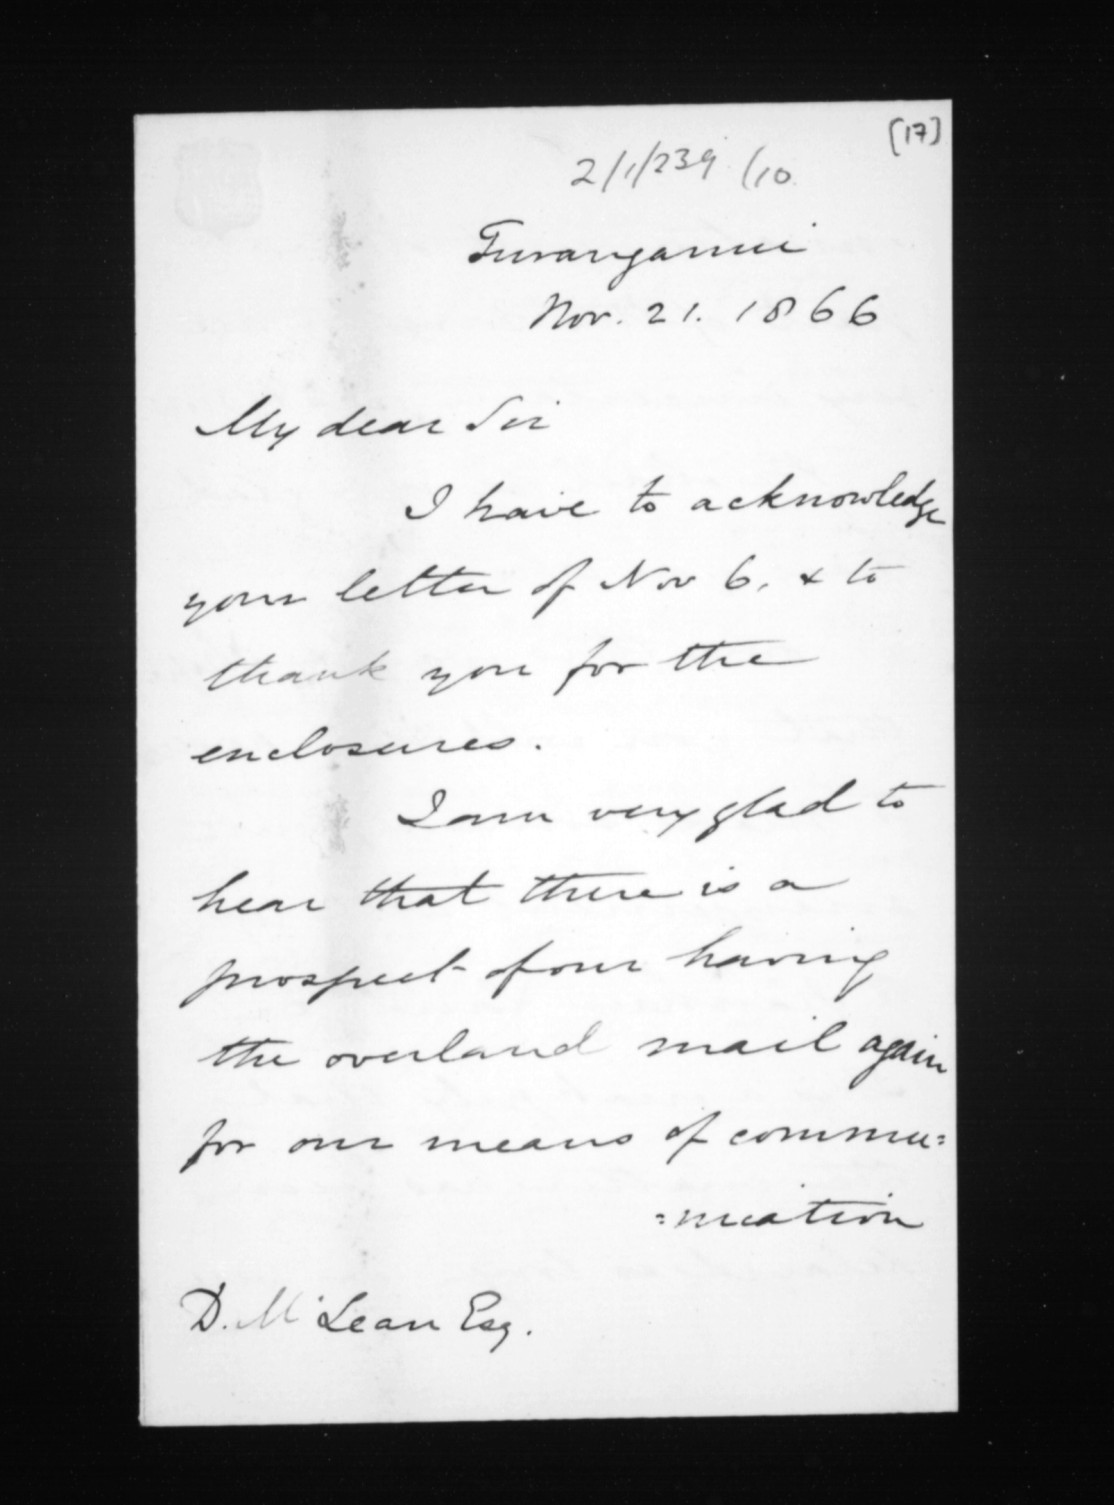 [17]
2/1/239/10
Turanganui
Nov. 21. 1866
My dear Sir
I have to acknowledge
your letter of Nov 6. & to
thank you for the
enclosures.
I am very glad to
hear that there is a
prospect of our having
the overland mail again
for our means of commu=
=nication
D. McLean Esq.